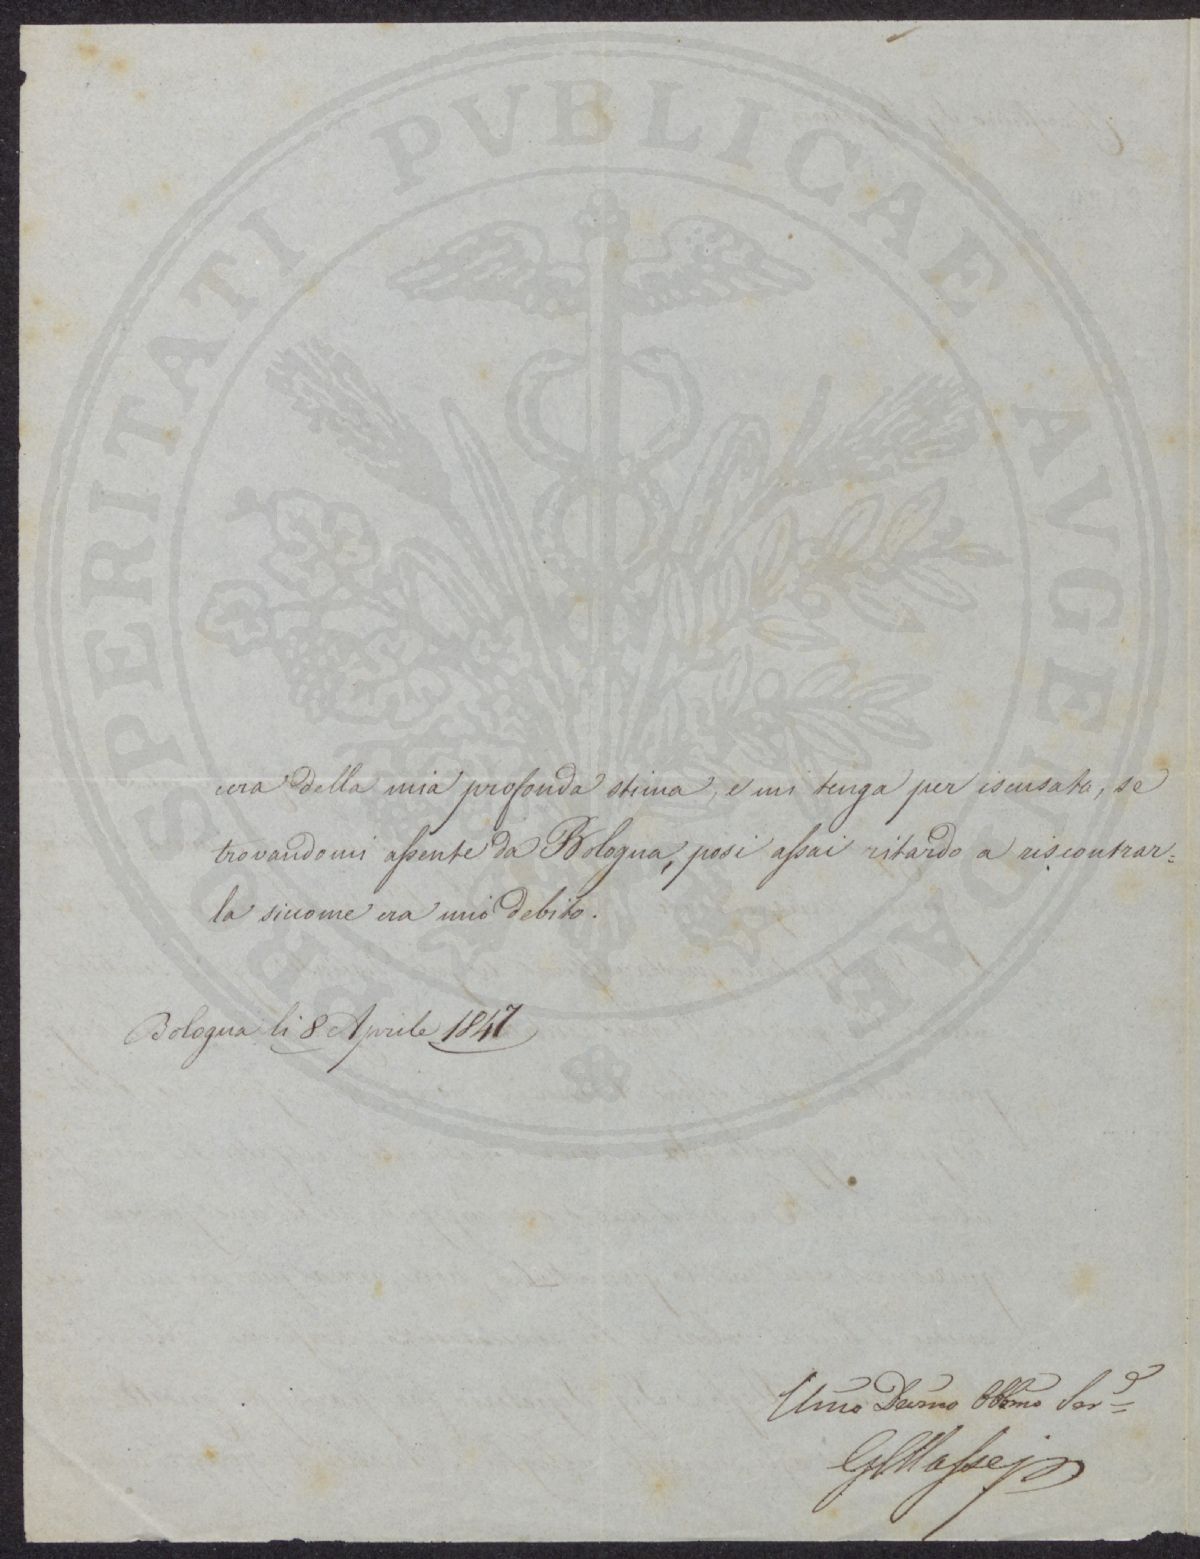 PROSPERITATI PVBLICAE AVGENDAE
cera della mia profonda stima, e mi tenga per iscusato, se
trovandomi assente da Bologna, posi assai ritardo a riscontrar=
la siccome era mio debito.
Bologna li 8 Aprile 1847
Umo Devmo Obbmo Serd=
G Massej